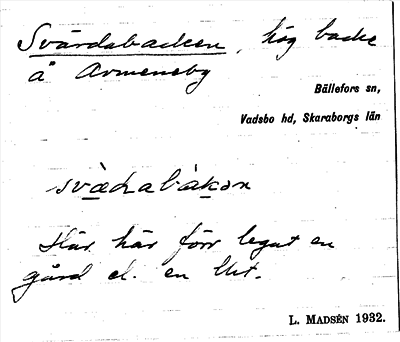 Svärdabacken, hög backe
å Armeneby
Bällefors sn,
Vadsbo hd, Skaraborgs län
svæ̀ɖabàkən
Här har förr legat en
gård el. en
L. MADSÉN 1932.